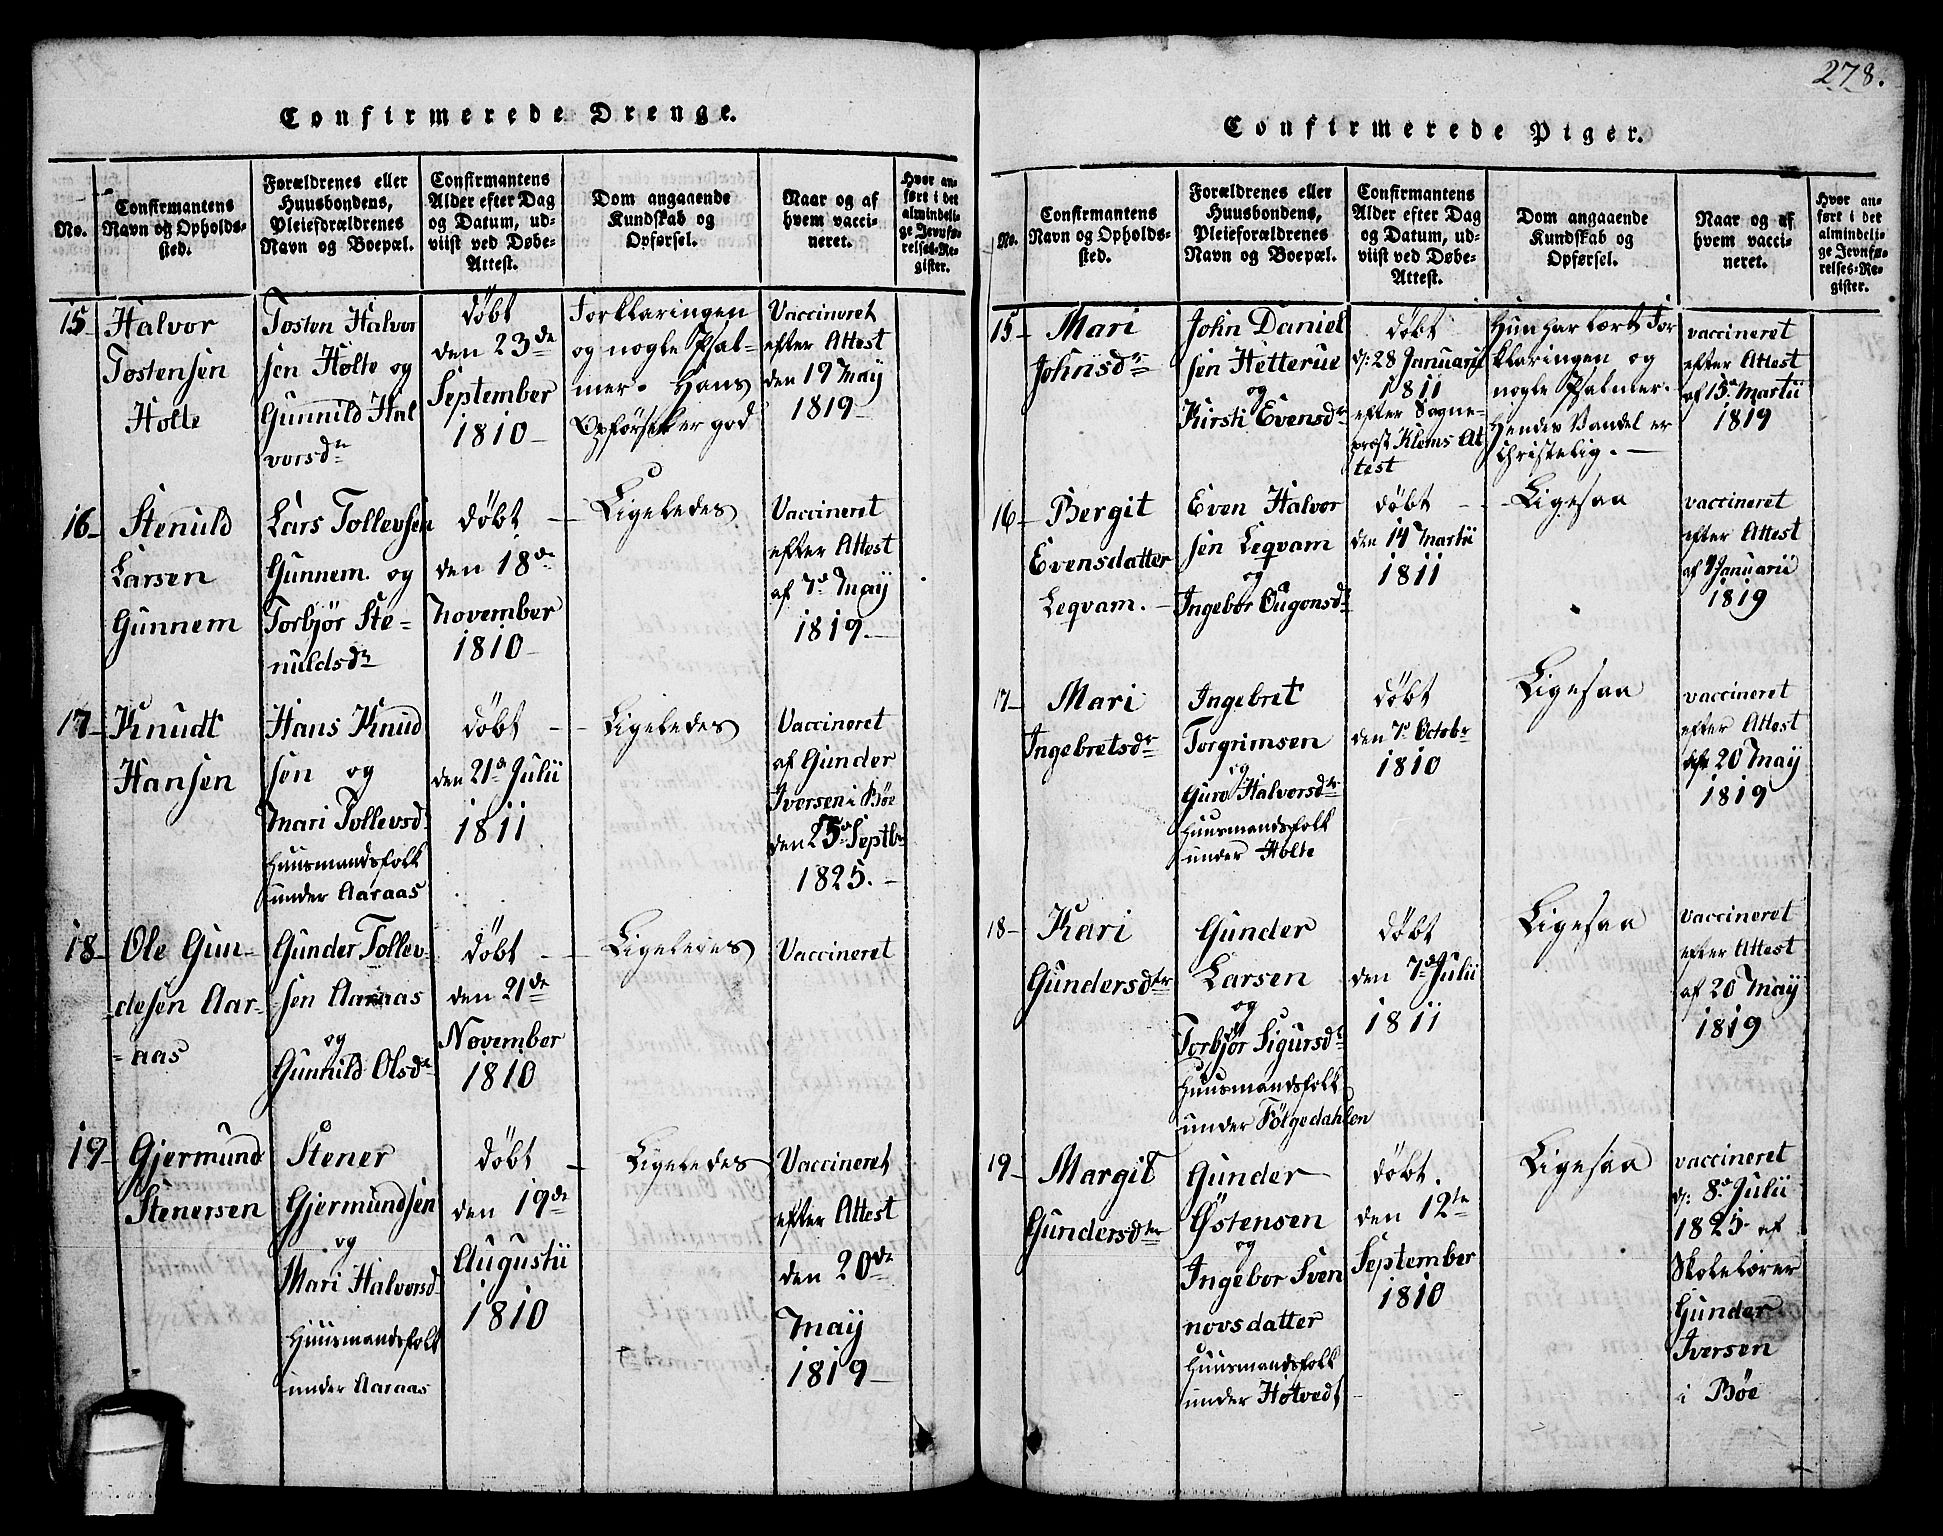 278.
Confirmerede Drenge.
No.
Confirmantens
Navn og Opholds-
sted.
Forældrenes eller
Huusbondens,
Pleiefdrældrenes
Navn og Boepæl.
Confirmantens
Alder efter Dag
og Datum, ud-
viist ved Døbe-
Attest.
Dom angaaende
Kundskab og
Opførsel.
Naar og af
hvem vacci-
neret.
Hvor an-
ført i det
almindeli-
ge Jevnfø-
relses-Re-
gister.
15
Halvor
Tostensen
Holte
Tosten Halvor
sen Holte og
Gunnild Hal
vorsdr
døbt
den 23de
September
1810
Forklaringen
og nogle Psal-
mer. Hans
Opførsel er god
Vaccineret
efter Attest
den 19 May
1819
16
Stenuld
Larsen
Gunnem
Lars Tollevsen
Gunnem og
Torbjør Ste-
nuldsdr
døbt
den 18de
November
1810
Ligeledes
Vaccineret
efter Attest
af 7de May
1819
17
Knudt
Hansen
Hans Knud
sen og
Mari Tollevsdr
Huusmandsfolk
under Aaraas
døbt
den 21de Julii
1811
Ligeledes
Vaccineret
af Gunder
Iversen i Bøe
den 25de Septbr
1825.
18
Ole Gun-
desen Aar-
aas
Gunder Tollev-
sen Aaraas
og
Gunnild Olsdr
døbt
den 21de
November
1810
Ligeledes
Vaccineret
19
Gjermund
Stenersen
Stener
Gjermundsen
og
Mari Halvorsd
Huusmandsfolk
under Aaraas
døbt
den 19de
Augustii
1810
Ligeledes
Vaccineret
efter Attest
den 20de
May
1819
Confirmerede Piger.
No.
Confirmantens
Navn og Opholds-
sted.
Forældrenes eller
Huusbondens,
Pleieforældrenes
Navn og Boepæl.
Confirmantens
Alder efter Dag
og Datum, ud-
viist ved Døbe-
Attest.
Dom angaaende
Kundskab og
Opførsel.
Naar og af
hvem vacci-
neret.
Hvor an-
ført i det
almindeli-
ge Jevnfø-
relses-Re-
gister.
15
Mari
Johnsdr
John Daniel
sen Hetterue
og
Kirsti Evensdr
døbt
d: 28 Januarii
1811
efter Sogne-
prest Klems At
test
Hun har lært For
klaringen og
nogle Psalmer.
Hendes Vandel er
Christelig.
vaccineret
efter Attest
af 15de Martii
1819
16
Bergit
Evensdatter
Leqvam.
Even Halvor
sen Leqvam
og
Ingebor Ougonsdr
døbt
den 14 Martii
1811
Ligesaa
vaccineret
efter Attest
af Januarii
1819
17
Mari
Ingebretsdr
Ingebret
Torgrimsen
og
Guro Halvorsdtr
Huusmandsfolk
under Holte
døbt
den 7de Octobr
1810
Ligesaa
vaccineret
efter Attest
af 20 May
1819
18
Kari
Gundersdtr
Gunder
Larsen
og
Torbjør Sigursdr
Huusmandsfolk
under Følgedahlen
døbt
den 7de Julii
1811
Ligesaa
vaccineret
efter Attest
af 20 May
1819
19
Margit
Gundersdtr
Gunder
Østensen
og
Ingebor Sven
novsdatter
Huusmandsfolk
under Hotvedt
døbt.
den 12te
September
1810
Ligesaa
vaccineret
d: 8de Julii
1825 af
Skolelærer
Gunder
Iversen
i Bøe